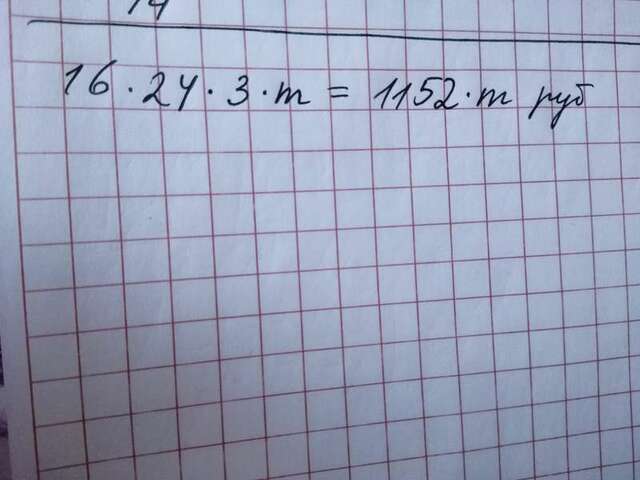 16 · 24 · 3 · m = 1152 · m руб